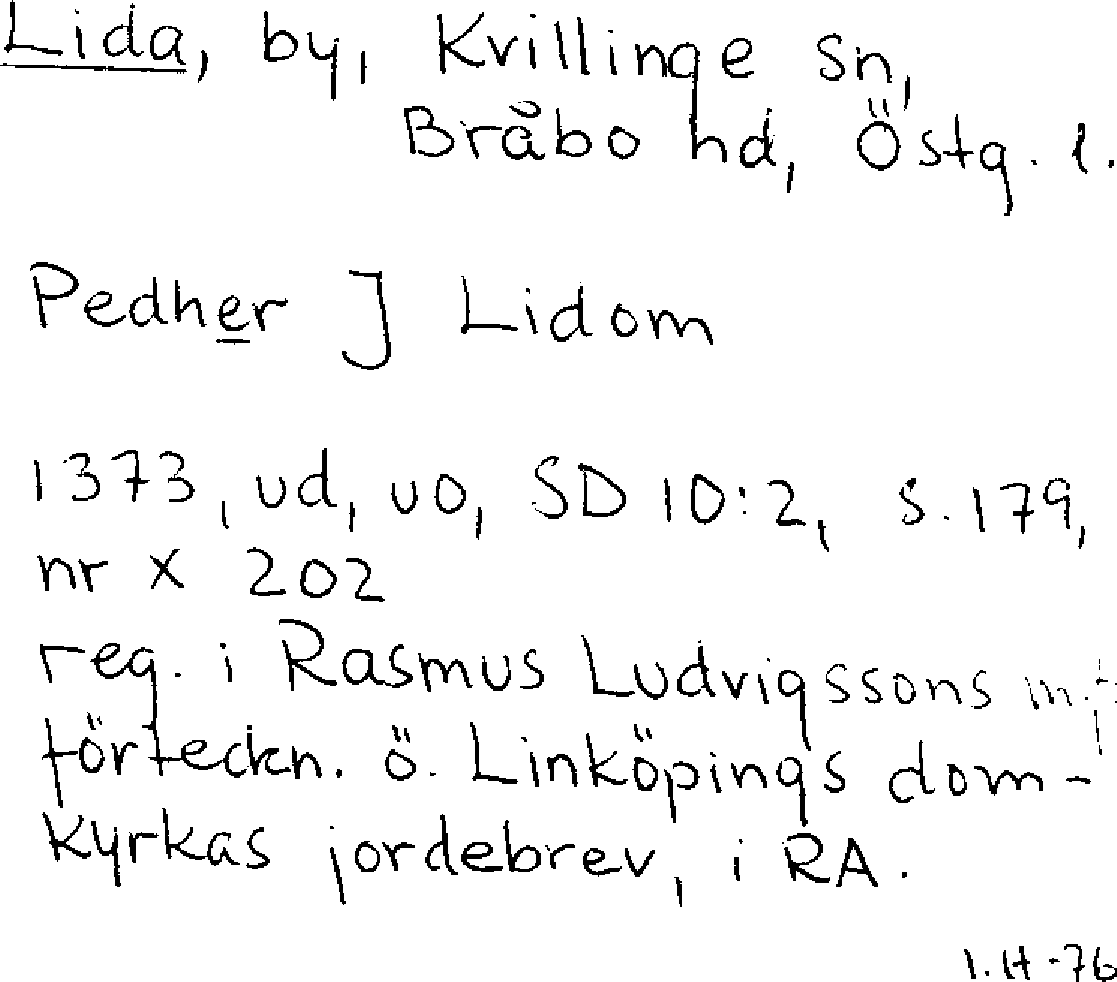 Lida, by, Kvillinge sn,
Bråbo hd, Östg. l.
Pedher J Lidom
1373, ud, uo, SD 10:2, s. 179,
nr X 202
reg. i Rasmus Ludvigssons
förteckn. ö. Linköpings dom-
kyrkas jordebrev, i RA.
I.H-76